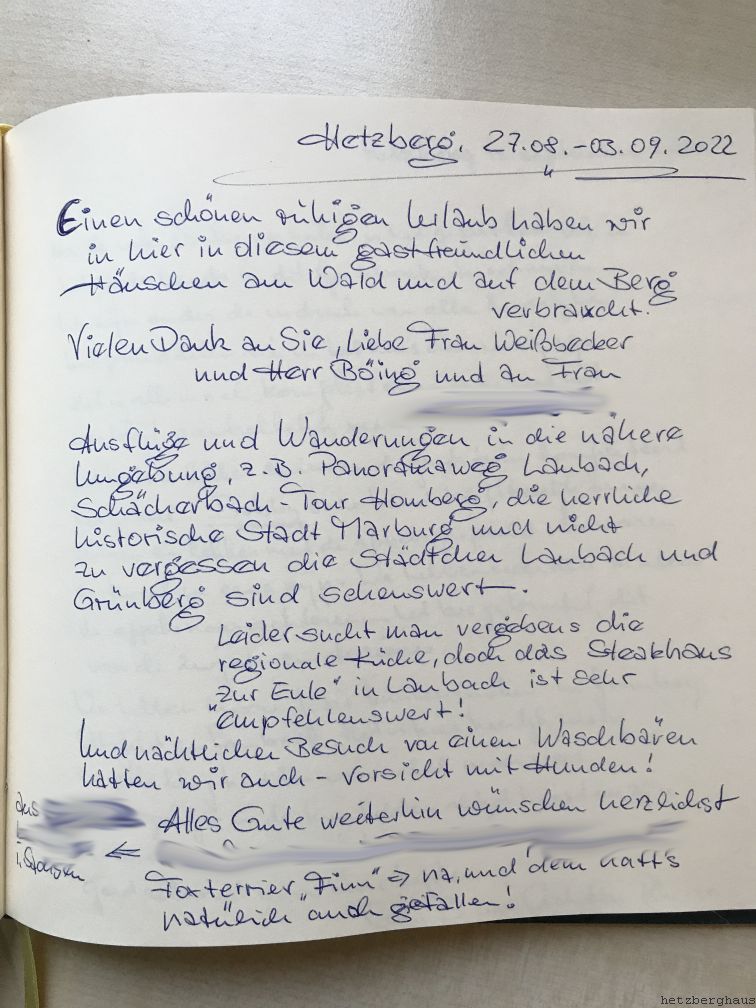 Hetzberg, 27.08.-03.09.2022
Einen schönen ruhigen Urlaub haben wir
in hier in diesem gastfreundlichen
Häuschen am Wald und auf dem Berg
verbraucht.
Vielen Dank an Sie, liebe Frau Weißbecker
und Herr Böing und an Frau
Ausflüge und Wanderungen in die nähere
Umgebung, z.B. Panoramaweg Laubach,
Schächerbach-Tour Homberg, die herrliche
historische Stadt Marburg und nicht
zu vergessen die Städtchen Laubach und
Grünberg sind sehenswert.
Leider sucht man vergebens die
regionale Küche, doch das Steakhaus
"zur Eule" in Laubach ist sehr
empfehlenswert!
Und nächtlichen Besuch von einem Waschbären
hatten wir auch - Vorsicht mit Hunden!
Alles Gute weiterhin wünschen herzlichst
aus
i. Sachsen
Foxterrier "Finn" => na, und dem hatt's
natürlich auch gefallen!
hetzberghaus